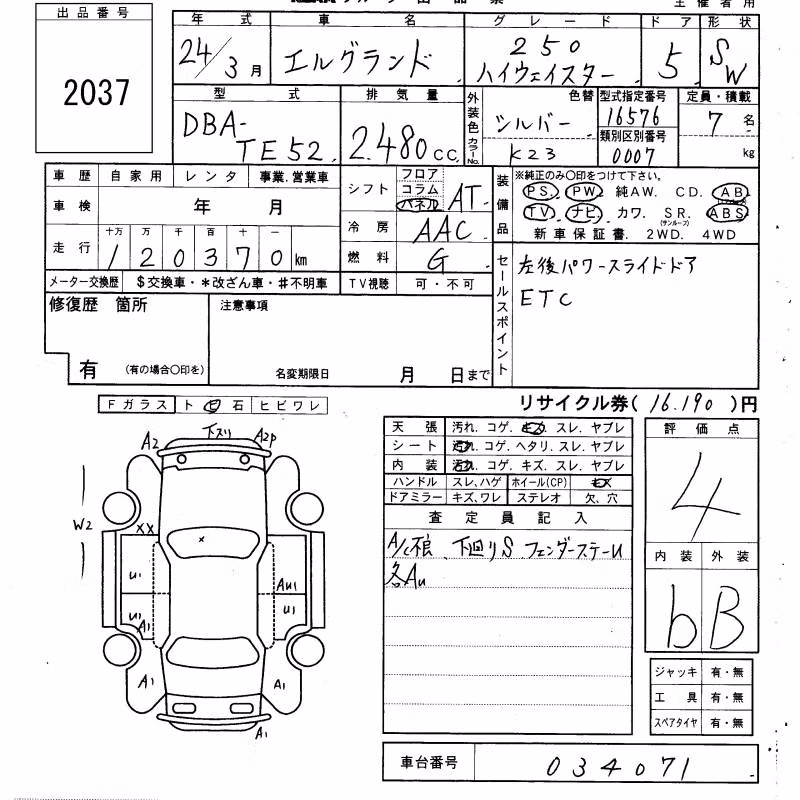 出品番号
2037
主催者用
年式 車名 グレード ドア 形状
24/3月 エルグランド 250 ハイウェイスター 5 SW
型式 排気量 外装色 色替 型式指定番号 定員・積載
DBA-TE52 2.480cc シルバー 16576 7名
カラーNo. K23 類別区別番号 0007 kg
車歴 自家用 レンタ 事業.営業車
車検 年 月
走行 十万 万 千 百 十 一
120370km
メーター交換歴 $交換車・*改ざん車・#不明車
シフト フロア コラム パネル AT
冷房 AAC
燃料 G
TV視聴 可・不可
装備品 ※純正のみ○印をつけて下さい。
PS. PW. 純AW. CD. AB
TV. ナビ. カワ. SR.(サンルーフ) ABS
新車保証書. 2WD. 4WD
セールスポイント
左後パワースライドドア
ETC
修復歴 箇所 注意事項
有 (有の場合○印を) 名変期限日 月 日まで
リサイクル券(16.190)円
Fガラス ト 日 石 ヒビワレ
天張 汚れ. コゲ. キズ. スレ. ヤブレ
シート 汚れ. コゲ. ヘタリ. スレ. ヤブレ
内装 汚れ. コゲ. キズ. スレ. ヤブレ
ハンドル スレ,ハゲ ホイール(CP) キズ
ドアミラー キズ,ワレ ステレオ 欠、穴
査定員記入
A/C不良、下廻りS フェンダーステーU
各Au
評価点
4
内装 外装
b B
ジャッキ 有・無
工具 有・無
スペアタイヤ 有・無
車台番号 034071
A2 下スリ A2P
W2
XX
x
U1 AU1
U1 U1
A1
A1 A1
A1